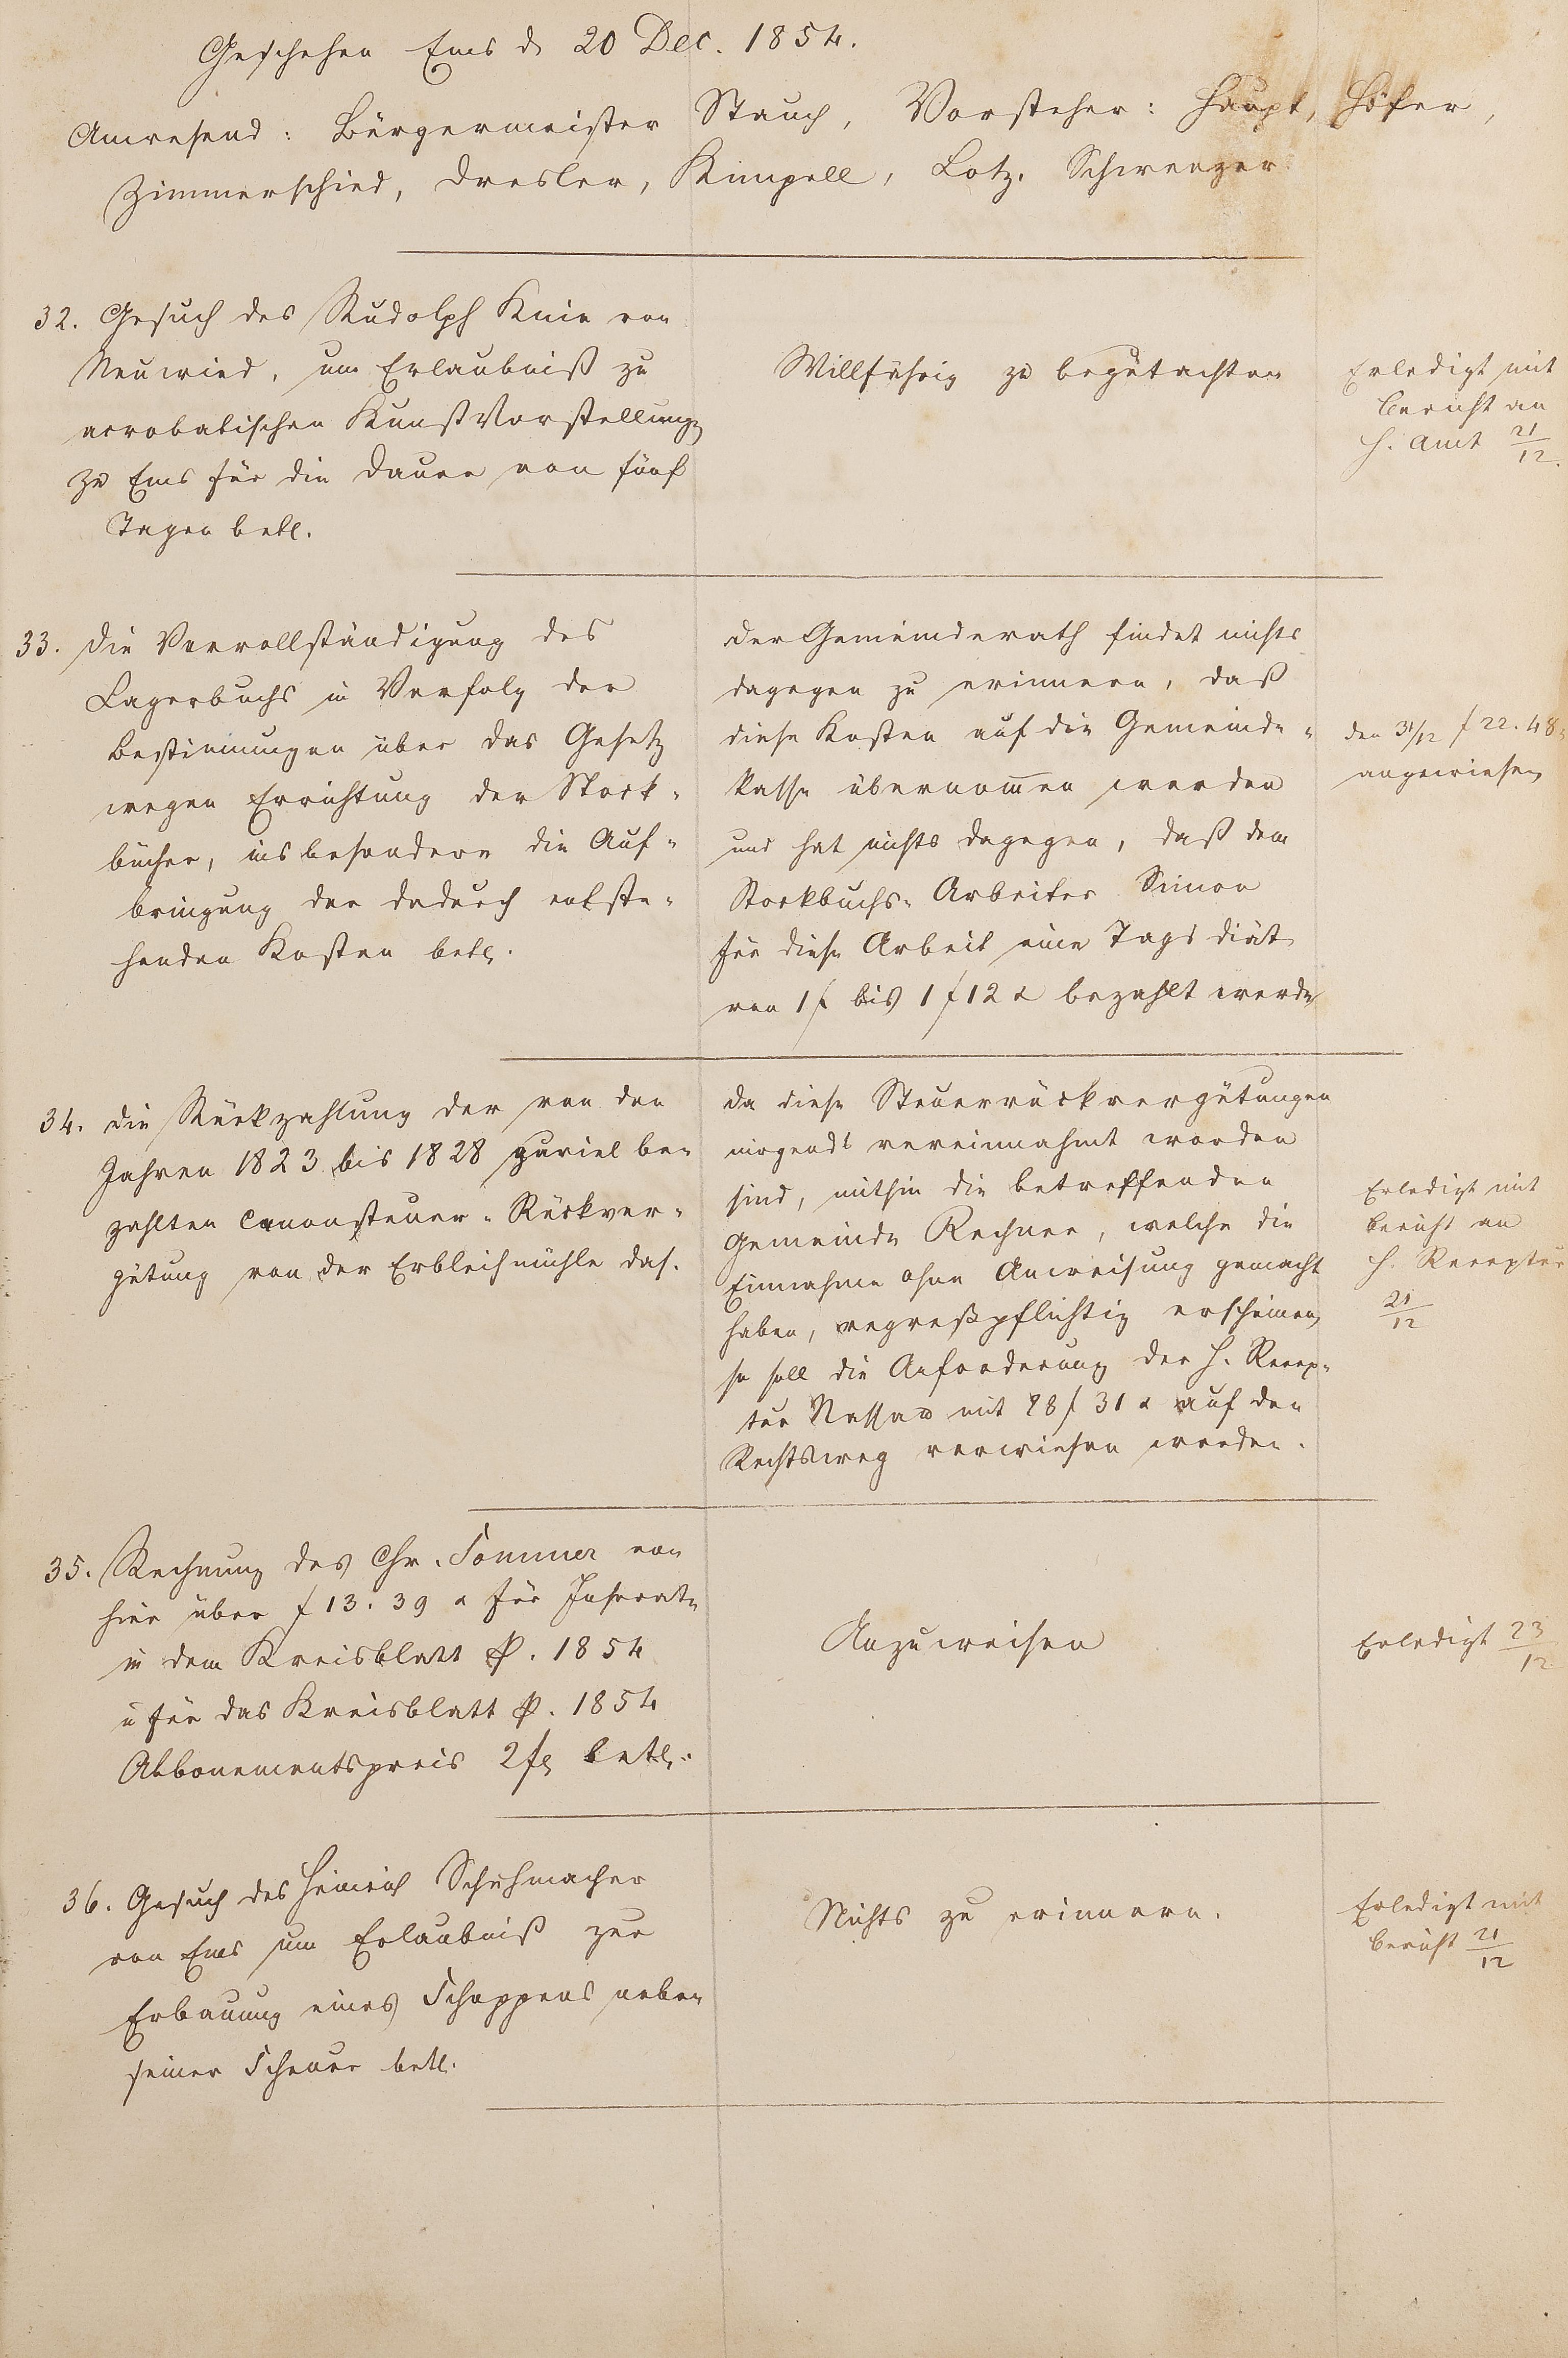 Geschehen Ems d 20 Dec. 1854.
Anwesend: Bürgermeister Stauch, Vorsteher: Haupt, Höfer,
Zimmerschied, Dresler, Kimpell, Lotz, Schwenzer
32. Gesuch des Rudolph Knie von
Neuwied, um Erlaubniß zu
acrobatischen Kunstvorstellungen
zu Ems für die Dauer von fünf
Tagen betr.
Willfährig zu begutachten
Erledigt mit
Bericht an
H. Amt 21/12.
33. Die Vervollständigung des
Lagerbuchs in Verfolg der
Bestimmungen über das Gesetz
wegen Errichtung der Stock-
bücher, insbesondere die Auf-
bringung der dadurch entste-
henden Kosten betr.
Der Gemeinderath findet nichts
dagegen zu erinnern, daß
diese Kosten auf die Gemeinde-
kasse übernommen werden
und hat nichts dagegen, daß dem
Stockbuchs-Arbeiter Simon
für diese Arbeit eine Tags diät
von 1 f bis 1 f 12 x bezahlt werde
den 31/12 f 22.48
angewiesen
34. Die Rückzahlung der von den
Jahren 1823 bis 1828 zuviel be-
zahlten Canonsteuer-Rückver-
gütung von der Erbleihmühle das.
Da diese Steuerrückvergütungen
nirgends vereinnahmt worden
sind, mithin die betreffenden
Gemeinde Rechner, welche die
Einnahme ohne Anweisung gemacht
haben, regreßpflichtig erscheinen,
so soll die Anforderung der H. Recep-
tur Nassau mit 28 f 31 x auf den
Rechtsweg verwiesen werden.
Erledigt mit
Bericht an
H. Receptur
21/12
35. Rechnung des Chr. Sommer von
hier über f 13.39 x für Inserate
in dem Kreisblatt p. 1854
u für das Kreisblatt p. 1854
Abbonementspreis 2 fl betr.
Anzuweisen
Erledigt 23/12
36. Gesuch des Heinrich Schuhmacher
von Ems um Erlaubniß zur
Erbauung eines Schoppens neben
seiner Scheuer betr.
Nichts zu erinnern.
Erledigt mit
Bericht 21/12